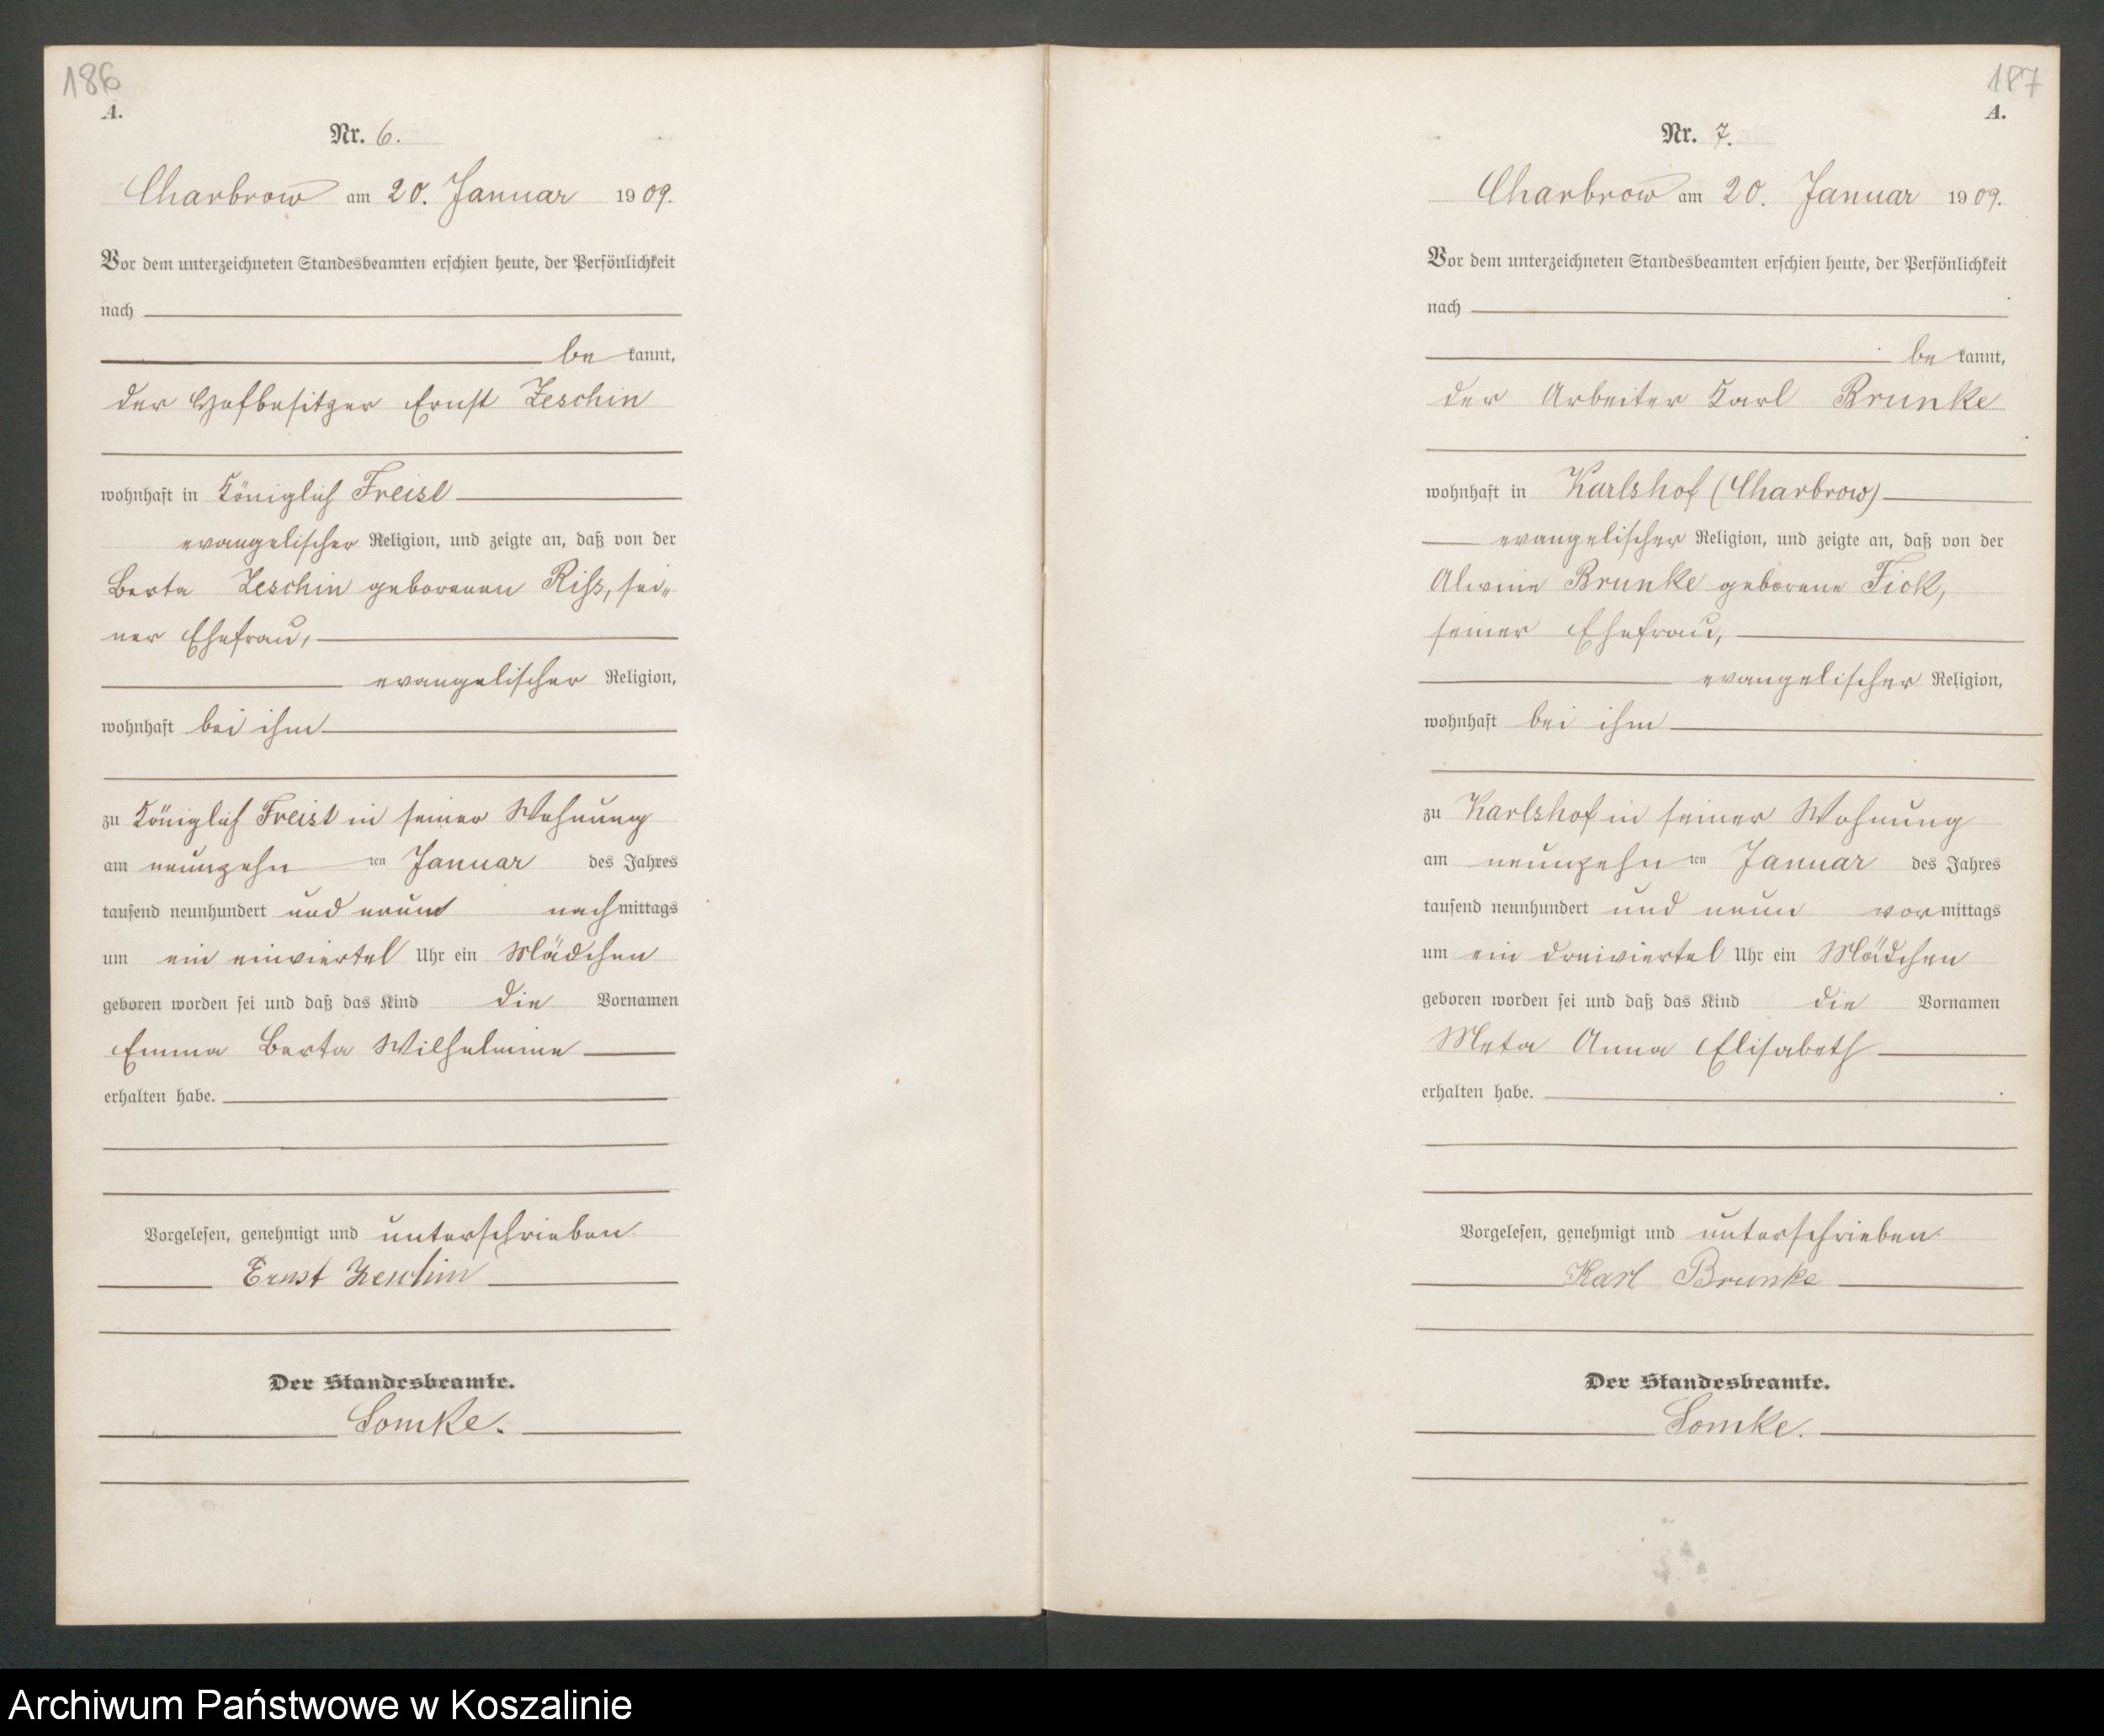 186
A.
Nr. 6.
Charbrow am 20. Januar 1909.
Vor dem unterzeichneten Standesbeamten erschien heute, der Persönlichkeit
nach
be kannt,
der Hofbesitzer Ernst Zeschin
wohnhaft in Königlich Freist
evangelischer Religion, und zeigte an, daß von der
Berta Zeschin geborenen Riß, sei-
ner Ehefrau,
evangelischer Religion,
wohnhaft bei ihm
zu Königlich Freist in seiner Wohnung
am neunzehn ten Januar des Jahres
tausend neunhundert und neun nachmittags
um ein einviertel Uhr ein Mädchen
geboren worden sei und daß das Kind die Vornamen
Emma Berta Wilhelmine
erhalten habe.
Vorgelesen, genehmigt und unterschrieben
Ernst Zeschin
Der Standesbeamte.
Lomke.
187
A.
Nr. 7.
Charbrow am 20. Januar 1909.
Vor dem unterzeichneten Standesbeamten erschien heute, der Persönlichkeit
nach
be kannt,
der Arbeiter Karl Brunke
wohnhaft in Karlshof (Charbrow)
evangelischer Religion, und zeigte an, daß von der
Alwine Brunke geborene Fick,
seiner Ehefrau,
evangelischer Religion,
wohnhaft bei ihm
zu Karlshof in seiner Wohnung
am neunzehn ten Januar des Jahres
tausend neunhundert und neun vormittags
um ein dreiviertel Uhr ein Mädchen
geboren worden sei und daß das Kind die Vornamen
Meta Anna Elisabeth
erhalten habe.
Vorgelesen, genehmigt und unterschrieben
Karl Brunke
Der Standesbeamte.
Lomke.
Archiwum Państwowe w Koszalinie